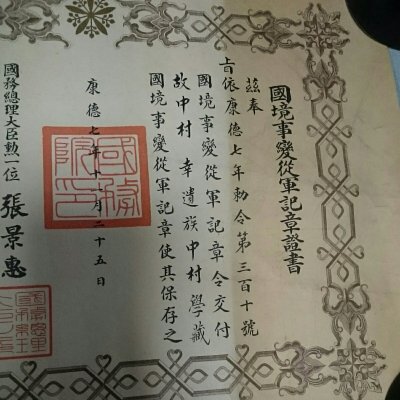 國境事變從軍記章證書
茲奉
上旨依康德七年勅令第三百十號
國境事變從軍記章令交付
故中村幸遺族中村學藏
國境事變從軍記章使其保存之
康德七年十一月二十五日
國務總理大臣勲一位張景惠
國務院印